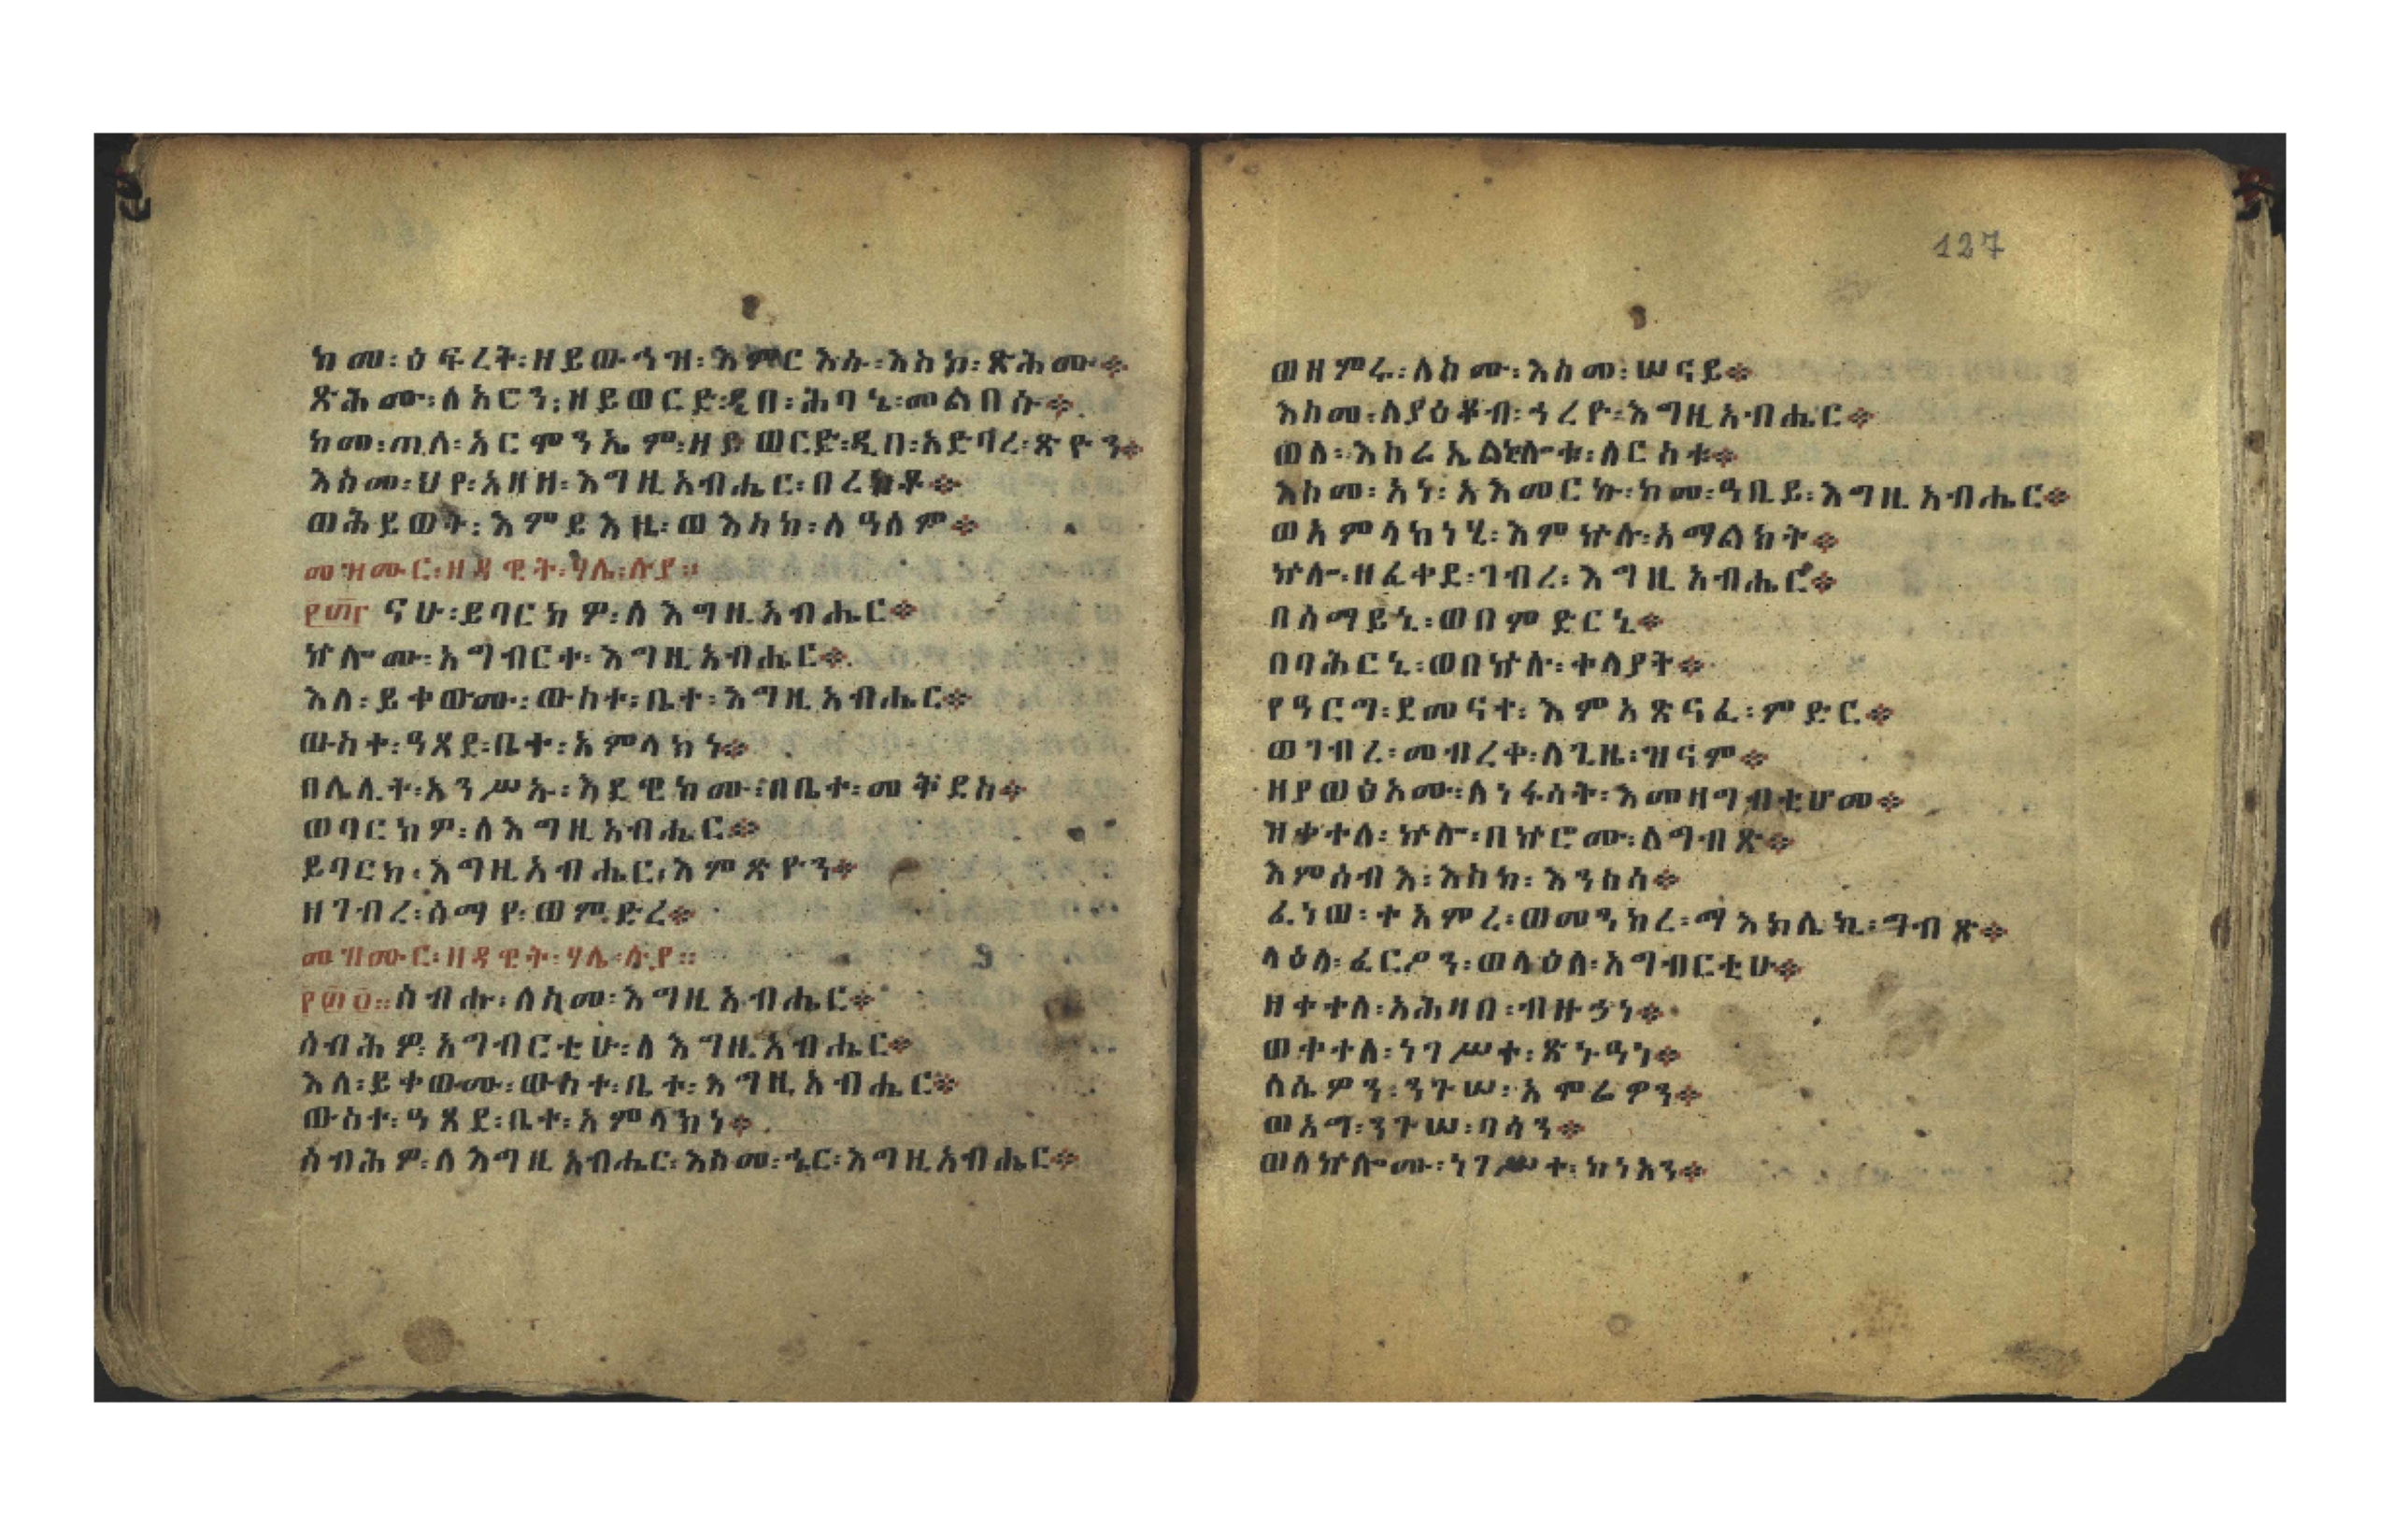 ከመ፡ዕፍረት፡ዘይውኅዝ፡እምርእሱ፡እስከ፡ጽሕሙ፨
ጽሕሙ፡ለአሮን፡ዘይወርድ፡ዲበ፡ሕባኔ፡መልበሱ፨
ከመ፡ጠለ፡አርሞንኤም፡ዘይወርድ፡ዲበ፡አድባረ፡ጽዮን፨
እስመ፡ህየ፡አዘዘ፡እግዚአብሔር፡በረከቶ፨
ወሕይወት፡እምይእዜ፡ወእስከ፡ለዓለም፨
መዝሙር፡ዘዳዊት፡ሃሌ፡ሉያ።
፻፴፫ ናሁ፡ይባርክዎ፡ለእግዚአብሔር፨
ኵሎሙ፡አግብርተ፡እግዚአብሔር፨
እለ፡ይቀውሙ፡ውስተ፡ቤተ፡እግዚአብሔር፨
ውስተ፡ዓጸደ፡ቤተ፡አምላክነ፨
በሌሊት፡አንሥኡ፡እደዊክሙ፡በቤተ፡መቅደስ፨
ወባርክዎ፡ለእግዚአብሔር፨
ይባርክ፡እግዚአብሔር፡እምጽዮን፨
ዘገብረ፡ሰማየ፡ወምድረ፨
መዝሙር፡ዘዳዊት፡ሃሌ፡ሉያ።
፻፴፬።ሰብሑ፡ለስመ፡እግዚአብሔር፨
ሰብሕዎ፡አግብርቲሁ፡ለእግዚአብሔር፨
እለ፡ይቀውሙ፡ውስተ፡ቤተ፡እግዚአብሔር፨
ውስተ፡ዓጸደ፡ቤተ፡አምላክነ፨
ሰብሕዎ፡ለእግዚአብሔር፡እስመ፡ኄር፡እግዚአብሔር፨
127
ወዘምሩ፡ለስሙ፡እስመ፡ሠናይ፨
እስመ፡ለያዕቆብ፡ኀረዮ፡እግዚአብሔር፨
ወለ፡እስራኤልኒ፡ሎቱ፡ለርስቱ፨
እስመ፡አነ፡አእመርኩ፡ከመ፡ዓቢይ፡እግዚአብሔር፨
ወአምላክነሂ፡እምኵሉ፡አማልክት፨
ኵሎ፡ዘፈቀደ፡ገብረ፡እግዚአብሔር፨
በሰማይኒ፡ወበምድርኒ፨
በባሕርኒ፡ወበኵሉ፡ቀላያት፨
የዓርግ፡ደመናተ፡እምአጽናፈ፡ምድር፨
ወገብረ፡መብረቀ፡ለጊዜ፡ዝናም፨
ዘያወፅአሙ፡ለነፋሳት፡እመዘግብቲሆመ፨
ዝቀተለ፡ኵሎ፡በኵሮሙ፡ለግብጽ፨
እምሰብእ፡እስከ፡እንስሳ፨
ፈነወ፡ተአምረ፡ወመንክረ፡ማእከሌኪ፡ግብጽ፨
ላዕለ፡ፈርዖን፡ወላዕለ፡አግብርቲሁ፨
ዘቀተለ፡አሕዛበ፡ብዙኃነ፨
ወቀተለ፡ነገሥተ፡ጽኑዓነ፨
ሰሴዎን፡ንጉሠ፡አሞሬዎን፨
ወአግ፡ንጉሠ፡ባሳን፨
ወለኵሎሙ፡ነገሥተ፡ከነአን፨